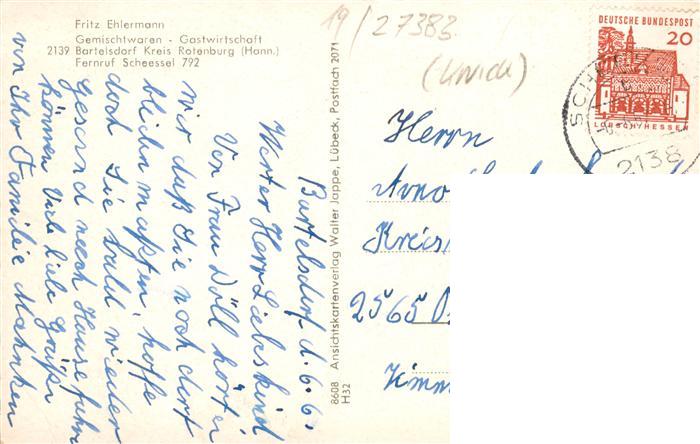 Fritz Ehlermann
Gemischtwaren - Gastwirtschaft
2139 Bartelsdorf Kreis Rotenburg (Hann.)
Fernruf Scheessel 792
Bartelsdorf d. 6.6.
Werter Herr Liebeskind
Von Frau Döll hörten
wir daß Sie noch dort
bleiben mußten, hoffe
doch Sie bald wieder
gesund nach Hause fahren
können Viele liebe Grüße
von Ihr Familie Mahnken
8608 Ansichtskartenverlag Walter Jappe, Lübeck, Postfach 2071
H32
19/27383
DEUTSCHE BUNDESPOST
20
LORSCH/HESSEN
2138
Herrn
Arno
Kreis
2565
Zimm